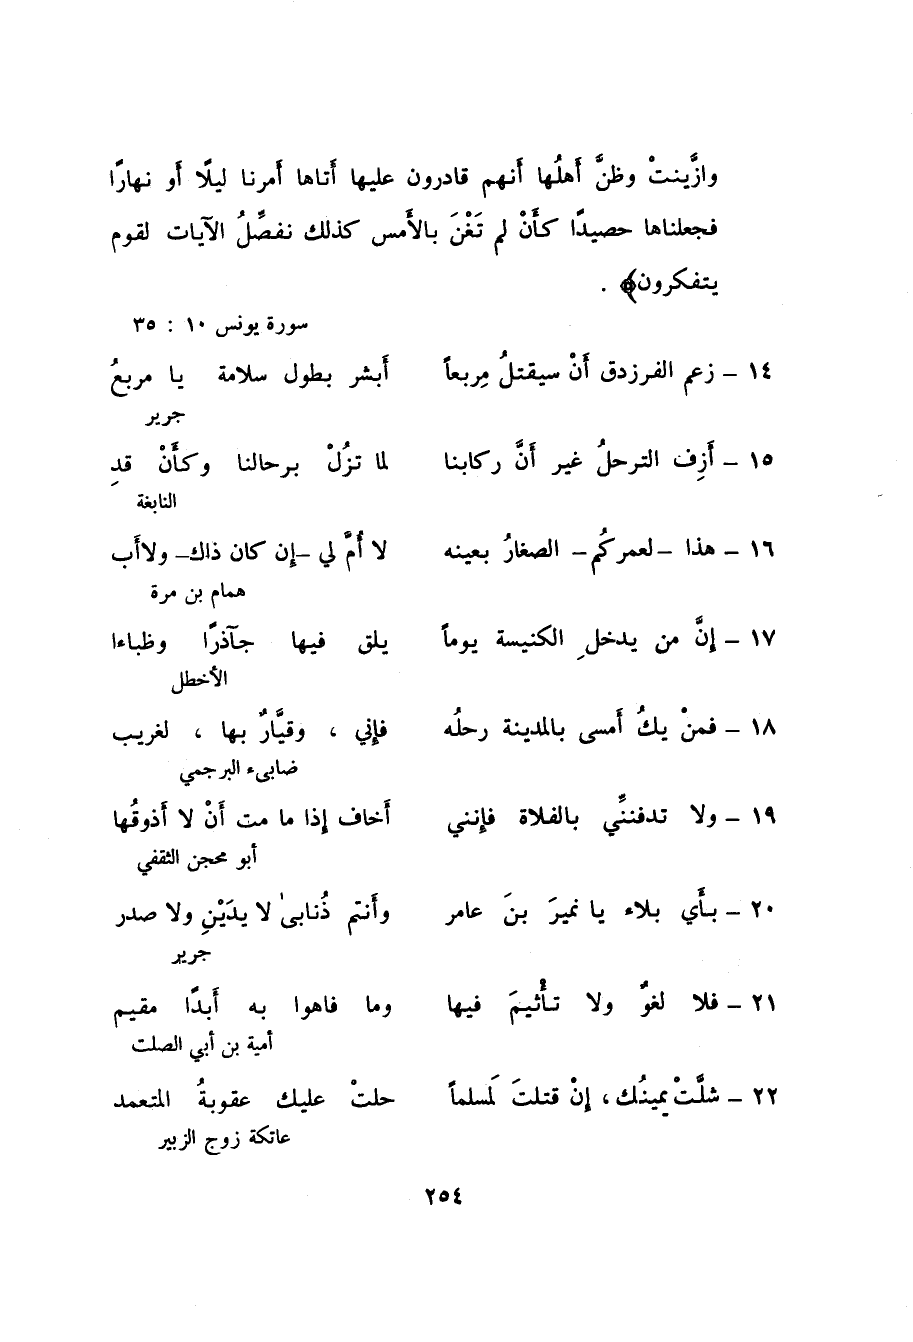 وازَّينتْ وظنَّ أَهلُها أَنهم قادرون عليها أَتاها أَمرنا ليلًا أَو نهارًا
فجعلناها حصيدًا كأَنْ لم تَغْنَ بالأَمس كذلك نفصِّلُ الآيات لقوم
يتفكرون﴾ .
سورة يونس ١٠ : ٣٥
١٤ – زعم الفرزدق أَنْ سيقتلُ مِربعاً أَبشر بطول سلامة يا مربعُ
جرير
١٥ – أَزِف الترحلُ غير أَنَّ ركابنا لما تزُلْ برحالنا وكأَنْ قدِ
النابغة
١٦ – هذا –لعمركُم– الصغارُ بعينه لا أُمَّ لي –إن كان ذاك– ولاأَب
همام بن مرة
١٧ – إنَّ من يدخلِ الكنيسة يوماً يلق فيها جآذرًا وظباءا
الأخطل
١٨ – فمنْ يكُ أَمسى بالمدينة رحلُه فإني ، وقيَّارٌ بها ، لغريب
ضابىء البرجمي
١٩ – ولا تدفننِّي بالفلاة فإنني أَخاف إذا ما مت أَنْ لا أَذوقُها
أبو محجن الثقفي
٢٠ – بأَي بلاء يا نميرَ بنَ عامر وأَنتم ذُنابىٰ لا يدَيْنِ ولا صدر
جرير
٢١ – فلا لغوٌ ولا تأْثيمَ فيها وما فاهوا به أَبدًا مقيم
أمية بن أبي الصلت
٢٢ – شلَّتْ يمينُك، إنْ قتلتَ لَمسلماً حلتْ عليك عقوبةُ المتعمد
عاتكة زوج الزبير
٢٥٤